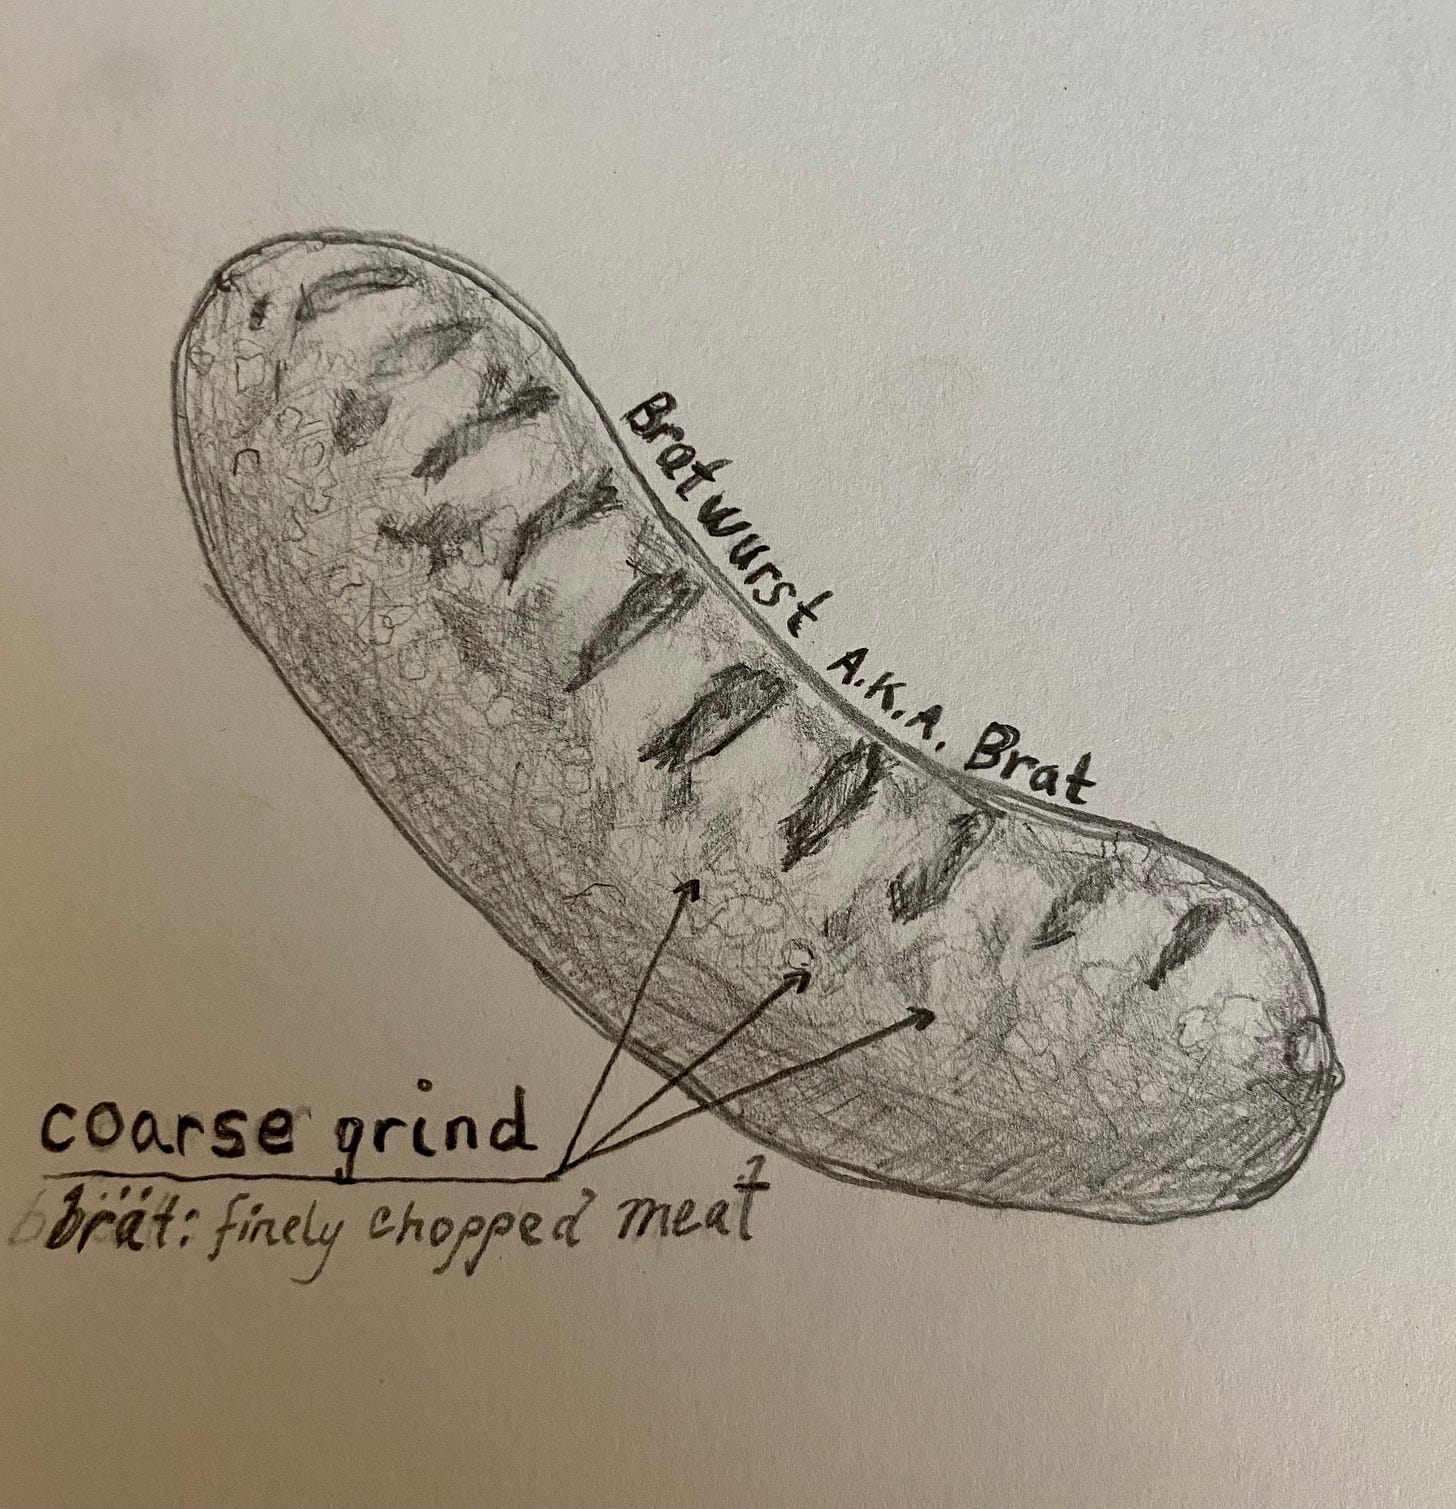 Bratwurst A.K.A. Brat
coarse grind
brät: finely chopped meat